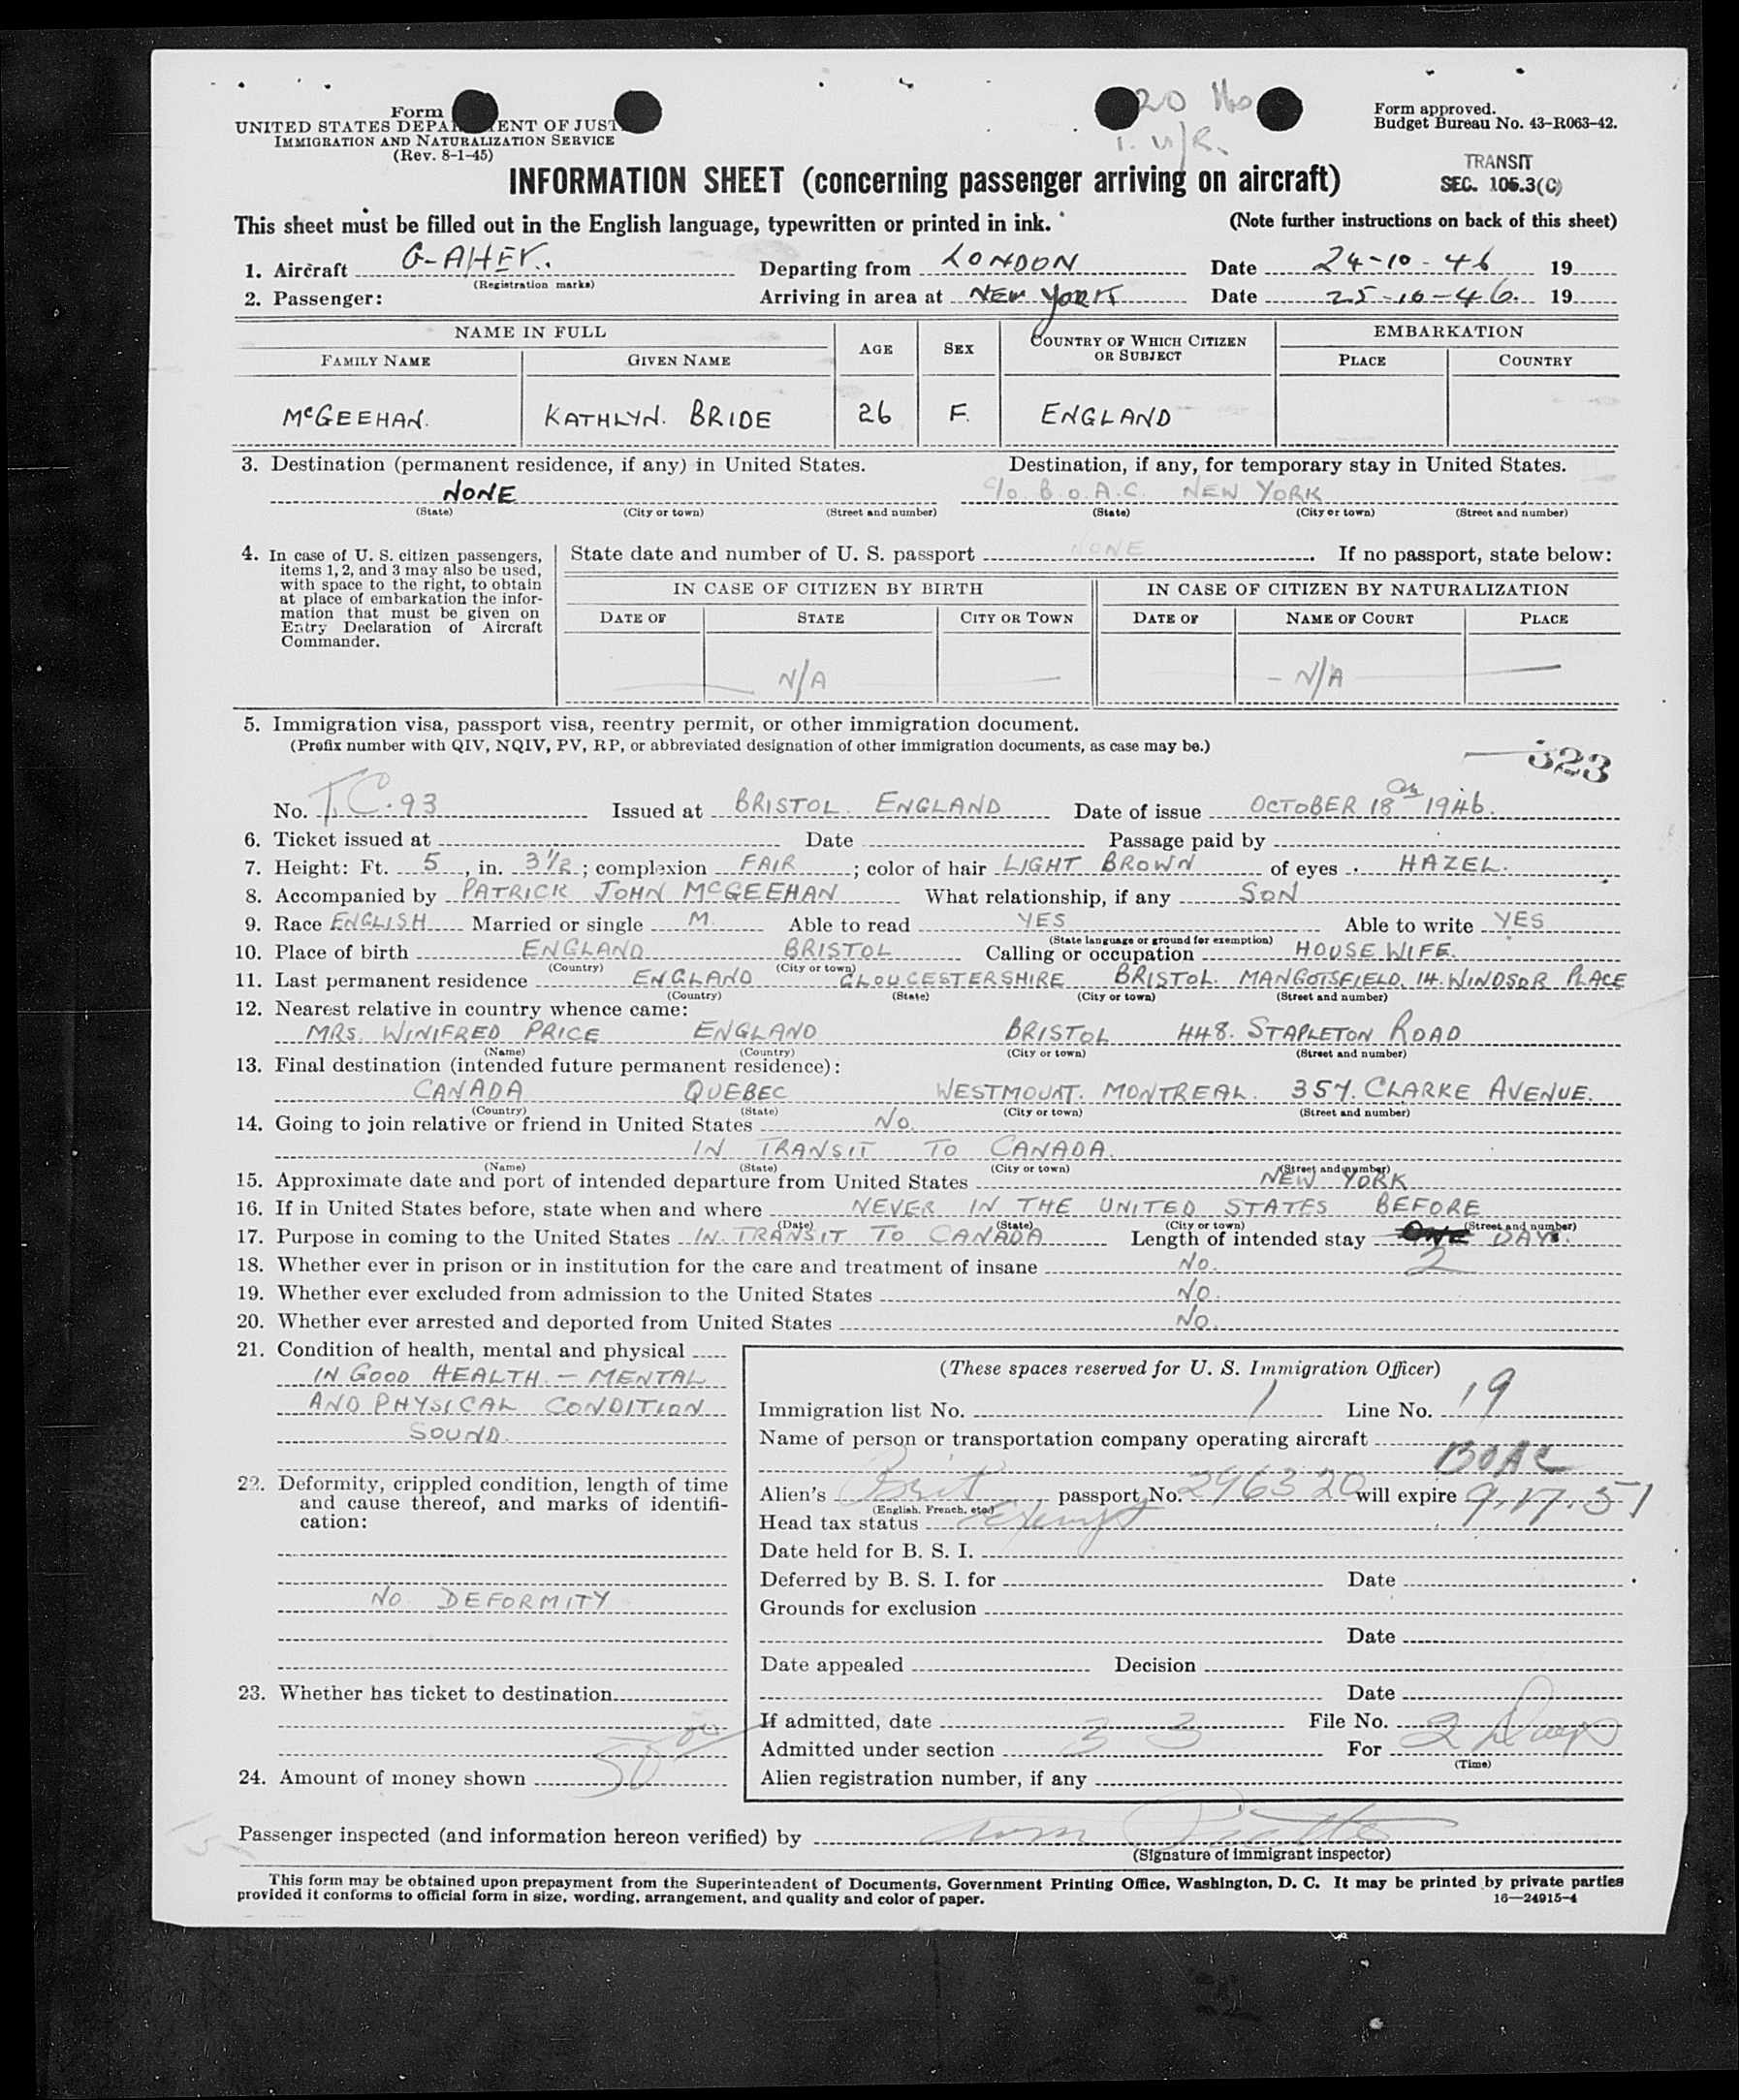 Form
UNITED STATES DEPARTMENT OF JUST
IMMIGRATION AND NATURALIZATION SERVICE
(Rev. 8-1-45)
20
Form approved.
Budget Bureau No. 43-R063-42.
TRANSIT
SEC. 105.3(C)
INFORMATION SHEET (concerning passenger arriving on aircraft)
This sheet must be filled out in the English language, typewritten or printed in ink. (Note further instructions on back of this sheet)
1. Aircraft (Registration marks) Departing from LONDON Date 24-10-46 19
2. Passenger: Arriving in area at NEW YORK Date 25-10-46. 19
NAME IN FULL AGE SEX COUNTRY OF WHICH CITIZEN OR SUBJECT EMBARKATION
FAMILY NAME GIVEN NAME PLACE COUNTRY
McGEEHAN. KATHLYN. BRIDE 26 F. ENGLAND
3. Destination (permanent residence, if any) in United States. Destination, if any, for temporary stay in United States.
NONE C/o. B.O.A.C. NEW YORK
(State) (City or town) (Street and number) (State) (City or town) (Street and number)
4. In case of U. S. citizen passengers, items 1, 2, and 3 may also be used, with space to the right, to obtain at place of embarkation the information that must be given on Entry Declaration of Aircraft Commander.
State date and number of U. S. passport NONE. If no passport, state below:
IN CASE OF CITIZEN BY BIRTH IN CASE OF CITIZEN BY NATURALIZATION
DATE OF STATE CITY OR TOWN DATE OF NAME OF COURT PLACE
N/A — - N/A —
5. Immigration visa, passport visa, reentry permit, or other immigration document.
(Prefix number with QIV, NQIV, PV, RP, or abbreviated designation of other immigration documents, as case may be.)
323
No. T.C. 93 Issued at BRISTOL. ENGLAND Date of issue OCTOBER 18 1946.
6. Ticket issued at Date Passage paid by
7. Height: Ft. 5, in. 3 1/2; complexion FAIR; color of hair LIGHT BROWN of eyes HAZEL.
8. Accompanied by PATRICK JOHN McGEEHAN What relationship, if any SON
9. Race ENGLISH Married or single M. Able to read YES Able to write YES
(State language or ground for exemption)
10. Place of birth ENGLAND BRISTOL Calling or occupation HOUSE WIFE.
(Country) (City or town)
11. Last permanent residence ENGLAND GLOUCESTERSHIRE BRISTOL. MANGOTSFIELD. 14. WINDSOR PLACE
(Country) (State) (City or town) (Street and number)
12. Nearest relative in country whence came:
MRS. WINIFRED PRICE ENGLAND BRISTOL 448. STAPLETON ROAD
(Name) (Country) (City or town) (Street and number)
13. Final destination (intended future permanent residence):
CANADA QUEBEC WESTMOUNT. MONTREAL. 357. CLARKE AVENUE.
(Country) (State) (City or town) (Street and number)
14. Going to join relative or friend in United States No.
IN TRANSIT TO CANADA.
(Name) (State) (City or town) (Street and number)
15. Approximate date and port of intended departure from United States NEW YORK
16. If in United States before, state when and where NEVER IN THE UNITED STATES BEFORE
(Date) (State) (City or town) (Street and number)
17. Purpose in coming to the United States IN TRANSIT TO CANADA Length of intended stay ONE DAYS.
2
18. Whether ever in prison or in institution for the care and treatment of insane No.
19. Whether ever excluded from admission to the United States No.
20. Whether ever arrested and deported from United States No.
21. Condition of health, mental and physical
IN GOOD HEALTH. — MENTAL
AND PHYSICAL CONDITION
SOUND.
22. Deformity, crippled condition, length of time and cause thereof, and marks of identification:
NO. DEFORMITY
23. Whether has ticket to destination
24. Amount of money shown 50 00
(These spaces reserved for U. S. Immigration Officer)
Immigration list No. 1 Line No. 19
Name of person or transportation company operating aircraft
BOAC
Alien's Brit passport No. 296320 will expire 9.17.51
(English, French, etc.)
Head tax status Exempt
Date held for B. S. I.
Deferred by B. S. I. for Date
Grounds for exclusion
Date
Date appealed Decision
Date
If admitted, date File No.
Admitted under section 3 3 For 2 Days
(Time)
Alien registration number, if any
Passenger inspected (and information hereon verified) by
(Signature of immigrant inspector)
This form may be obtained upon prepayment from the Superintendent of Documents, Government Printing Office, Washington, D. C. It may be printed by private parties
provided it conforms to official form in size, wording, arrangement, and quality and color of paper. 16—24915-4